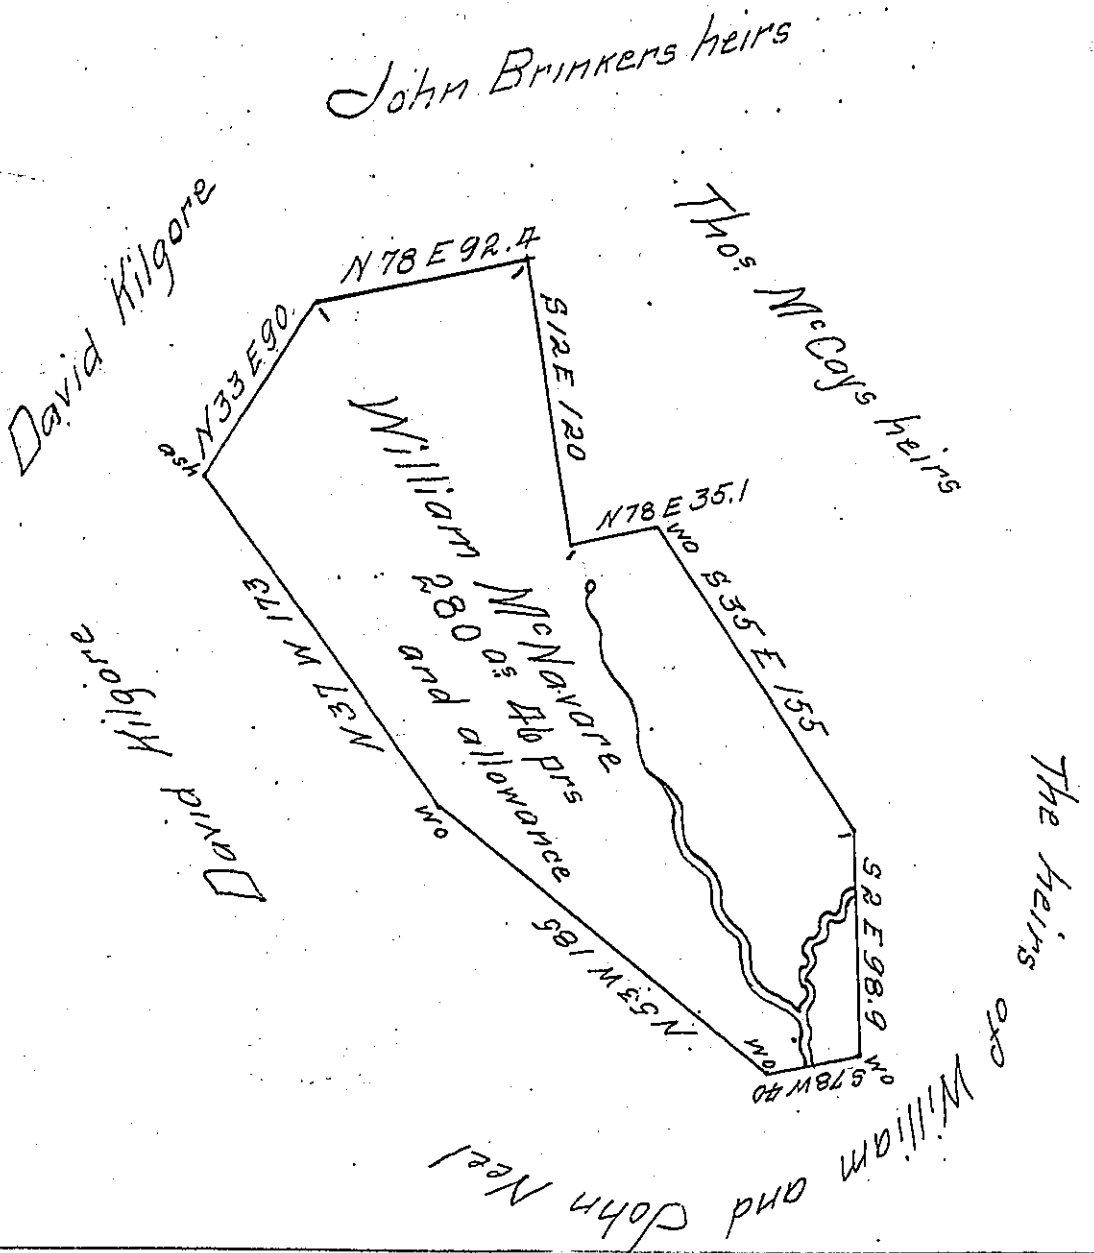 John Brinkers heirs
David Kilgore
Thos. McCays heirs
N 78 E 92.4
N 33 E 90.
S 12 E 120
ash
N 78 E 35.1
wo
S 35 E 155
William McNavare
280 as. 46 prs
and allowance
N 37 W 173
David Kilgore
wo
N 53 W 185
S 2 E 98.9
wo
S 78 W 40
wo
The heirs of William and John Neel